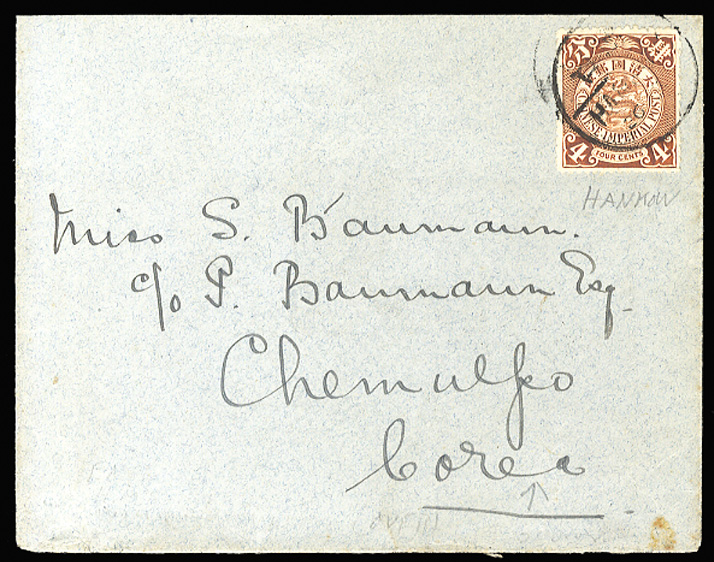 分 肆
大清國郵
CHINESE IMPERIAL POST
4 FOUR CENTS 4
HANKOW
Miss S. Baumann.
c/o P. Baumann Esq.
Chemulpo
Corea